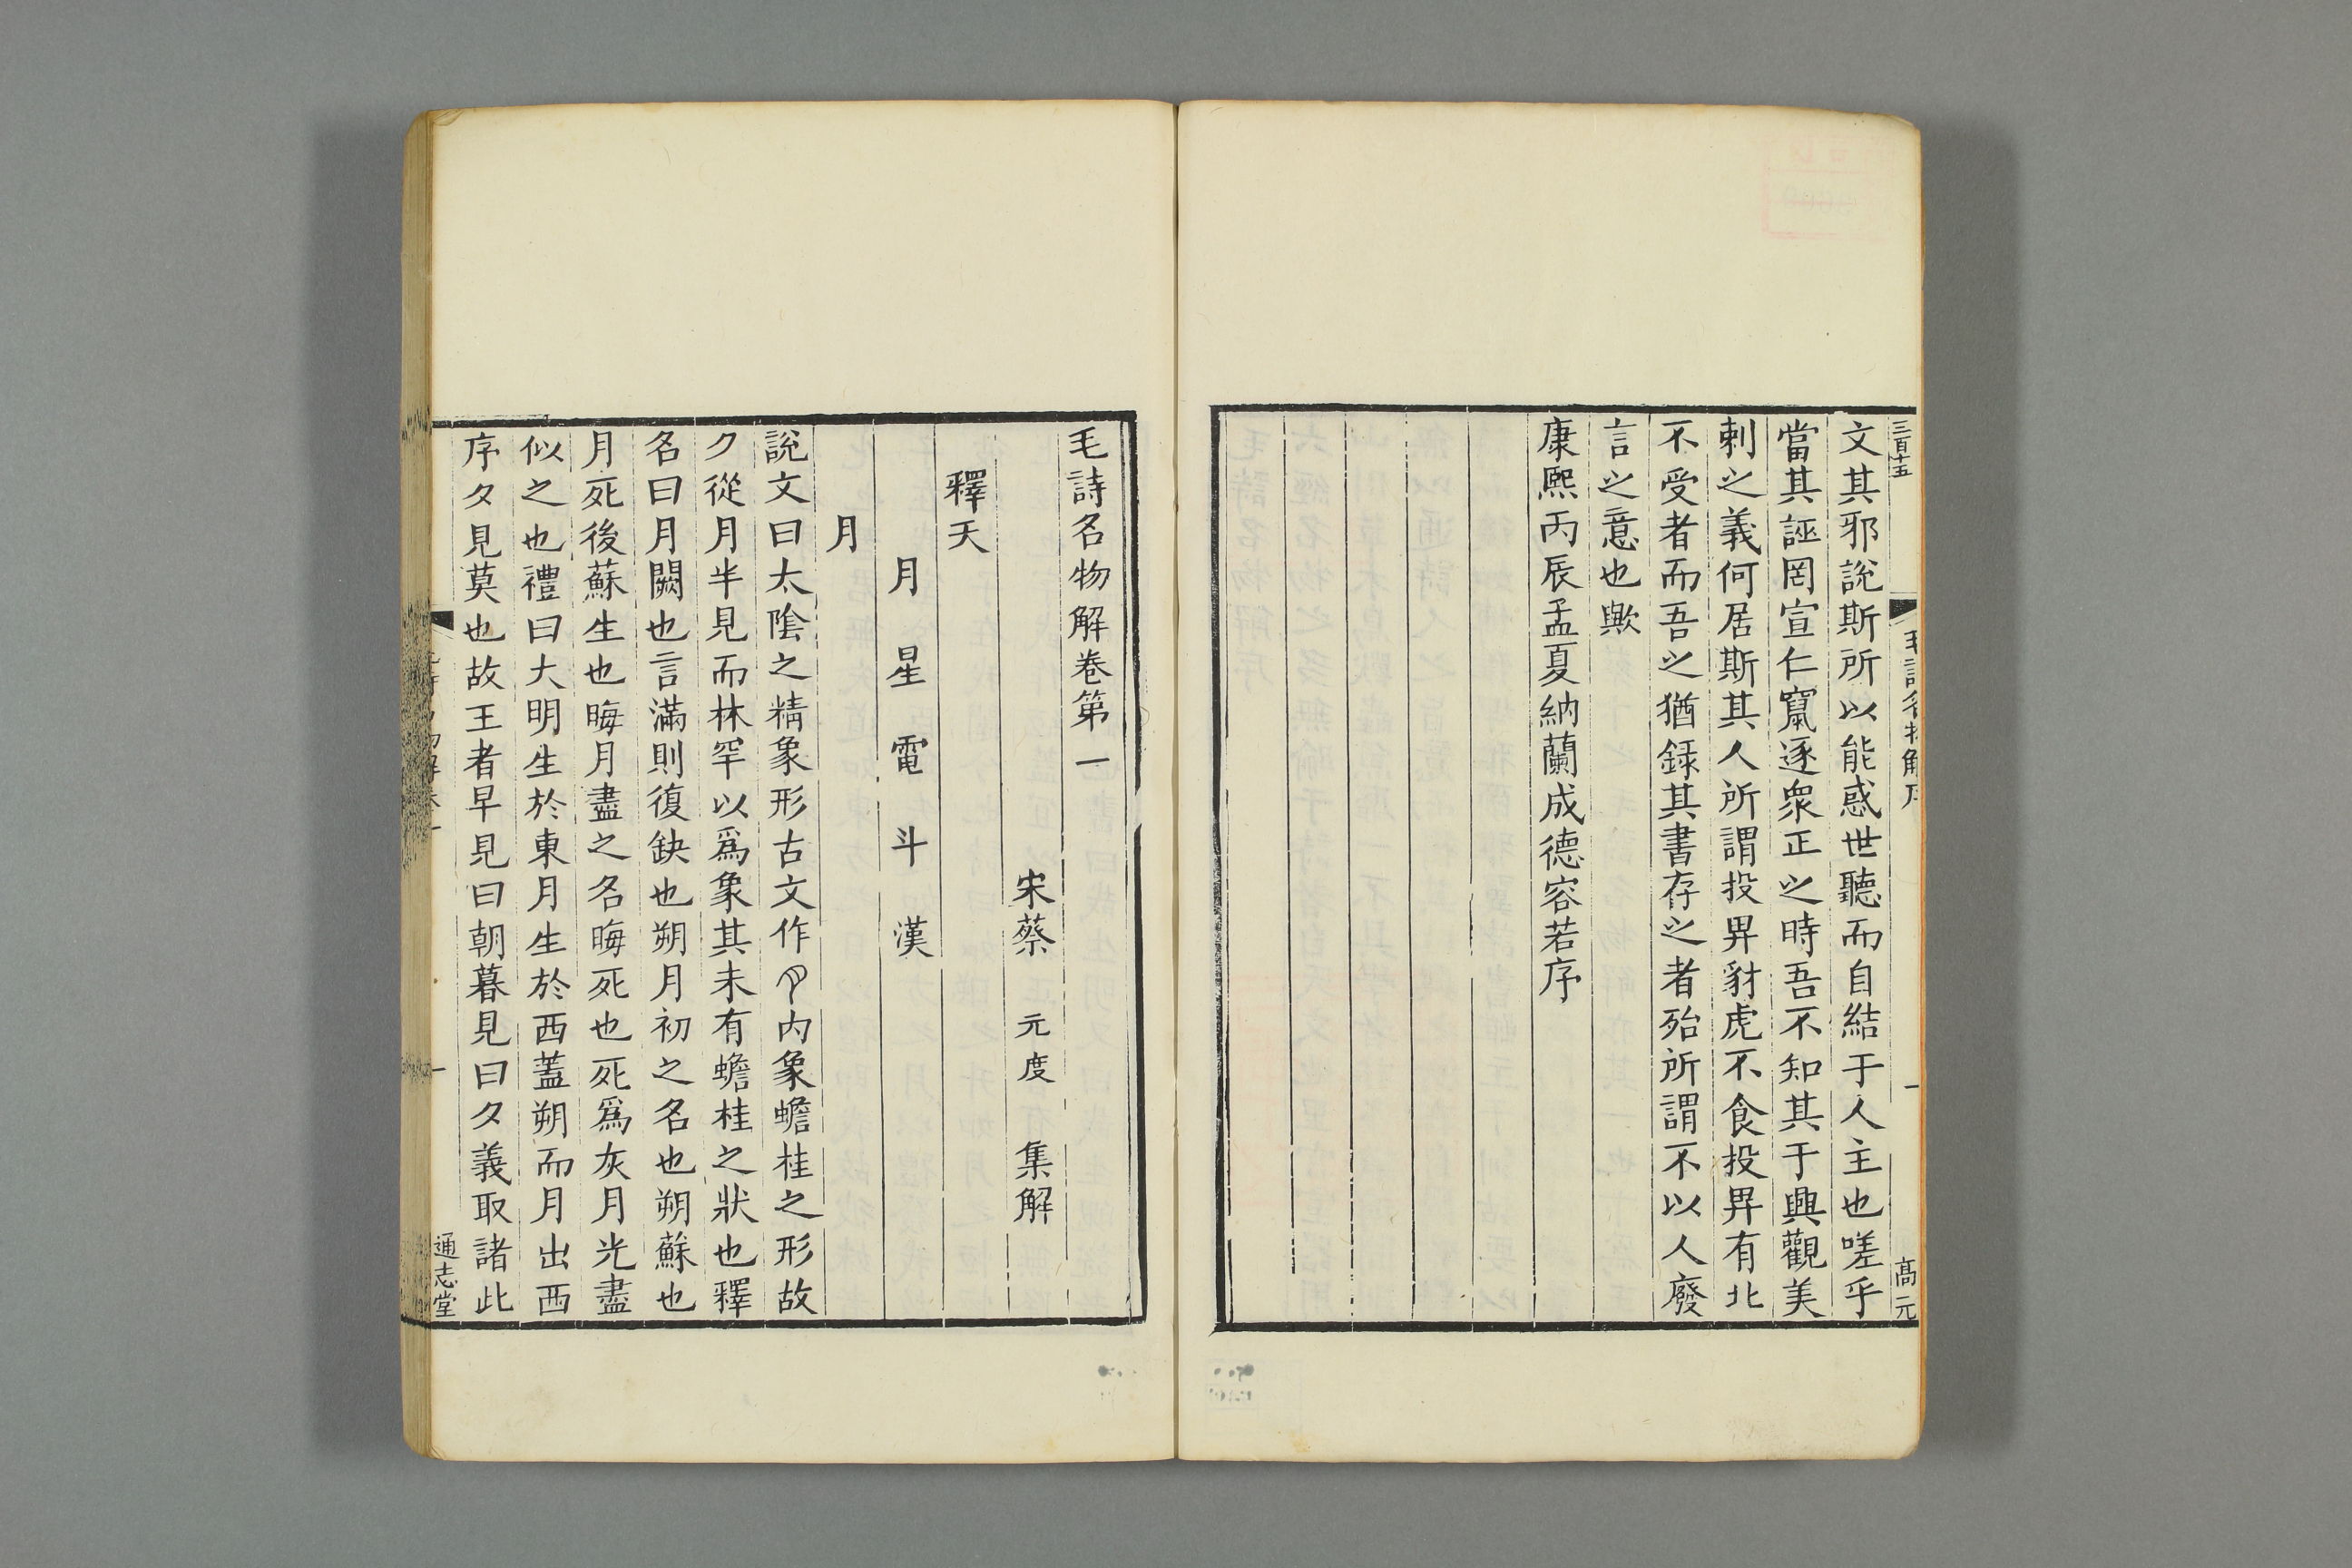 三百十五
毛詩名物解序
一
高元
文其邪說斯所以能惑世聽而自結于人主也嗟乎
當其誣罔宣仁竄逐衆正之時吾不知其于興觀美
刺之義何居斯其人所謂投畀豺虎不食投畀有北
不受者而吾之猶録其書存之者殆所謂不以人廢
言之意也歟
康熙丙辰孟夏納蘭成德容若序
毛詩名物解卷第一
宋蔡 元度 集解
釋天
月 星 電 斗 漢
月
說文曰太陰之精象形古文作 内象蟾桂之形故
夕從月半見而林罕以爲象其未有蟾桂之狀也釋
名曰月闕也言滿則復缺也朔月初之名也朔蘇也
月死後蘇生也晦月盡之名晦死也死爲灰月光盡
似之也禮曰大明生於東月生於西蓋朔而月出西
序夕見莫也故王者早見曰朝暮見曰夕義取諸此
一
通志堂